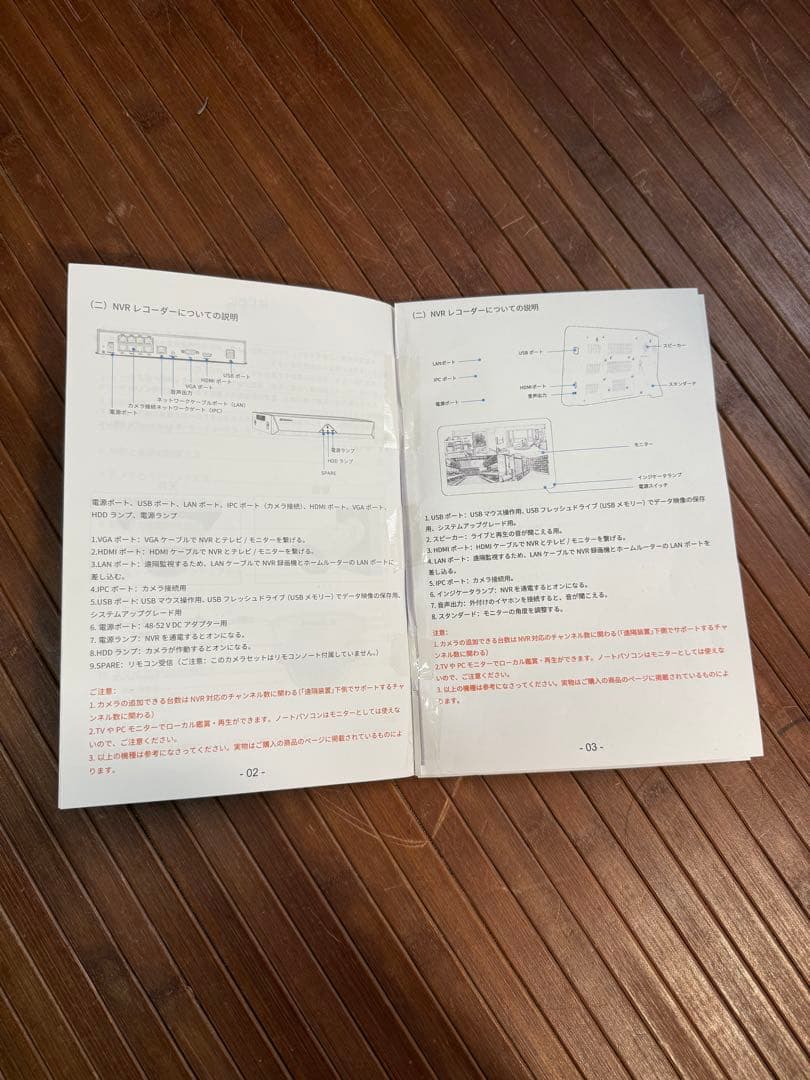 （二）NVR レコーダーについての説明
USB ポート
HDMI ポート
VGA ポート
音声出力
ネットワークケーブルポート（LAN）
カメラ接続ネットワークゲート（IPC）
電源ポート
電源ランプ
HDD ランプ
SPARE
電源ポート、USB ポート、LAN ポート、IPC ポート（カメラ接続）、HDMI ポート、VGA ポート、
HDD ランプ、電源ランプ
1.VGA ポート：VGA ケーブルで NVR とテレビ / モニターを繋げる。
2.HDMI ポート：HDMI ケーブルで NVR とテレビ / モニターを繋げる。
3.LAN ポート：遠隔監視するため、LAN ケーブルで NVR 録画機とホームルーターの LAN ポートに
差し込む。
4.IPC ポート：カメラ接続用
5.USB ポート：USB マウス操作用、USB フレッシュドライブ（USB メモリー）でデータ映像の保存用、
システムアップグレード用
6. 電源ポート：48-52 V DC アダプター用
7. 電源ランプ：NVR を通電するとオンになる。
8.HDD ランプ：カメラが作動するとオンになる。
9.SPARE：リモコン受信（ご注意：このカメラセットはリモコンノート付属していません。）
ご注意：
1. カメラの追加できる台数は NVR 対応のチャンネル数に関わる（「遠隔装置」下側でサポートするチャ
ンネル数に関わる）
2.TV や PC モニターでローカル鑑賞・再生ができます。ノートパソコンはモニターとしては使えな
いので、ご注意ください。
3. 以上の機種は参考になさってください。実物はご購入の商品のページに掲載されているものによ
ります。
- 02 -
（二）NVR レコーダーについての説明
LANポート
IPC ポート
電源ポート
USB ポート
HDMIポート
音声出力
スピーカー
スタンダード
モニター
インジケータランプ
電源スイッチ
1. USB ポート：USB マウス操作用、USB フレッシュドライブ（USB メモリー）でデータ映像の保存
用、システムアップグレード用。
2. スピーカー：ライブと再生の音が聞こえる用。
3. HDMI ポート：HDMI ケーブルで NVR とテレビ / モニターを繋げる。
4. LAN ポート：遠隔監視するため、LAN ケーブルで NVR 録画機とホームルーターの LAN ポートを
差し込る。
5. IPC ポート：カメラ接続用。
6. インジケータランプ：NVR を通電するとオンになる。
7. 音声出力：外付けのイヤホンを接続すると、音が聞こえる。
8. スタンダード：モニターの角度を調整する。
注意：
1. カメラの追加できる台数は NVR 対応のチャンネル数に関わる（「遠隔装置」下側でサポートするチャ
ンネル数に関わる）
2.TV や PC モニターでローカル鑑賞・再生ができます。ノートパソコンはモニターとしては使えな
いので、ご注意ください。
3. 以上の機種は参考になさってください。実物はご購入の商品のページに掲載されているものによ
ります。
- 03 -